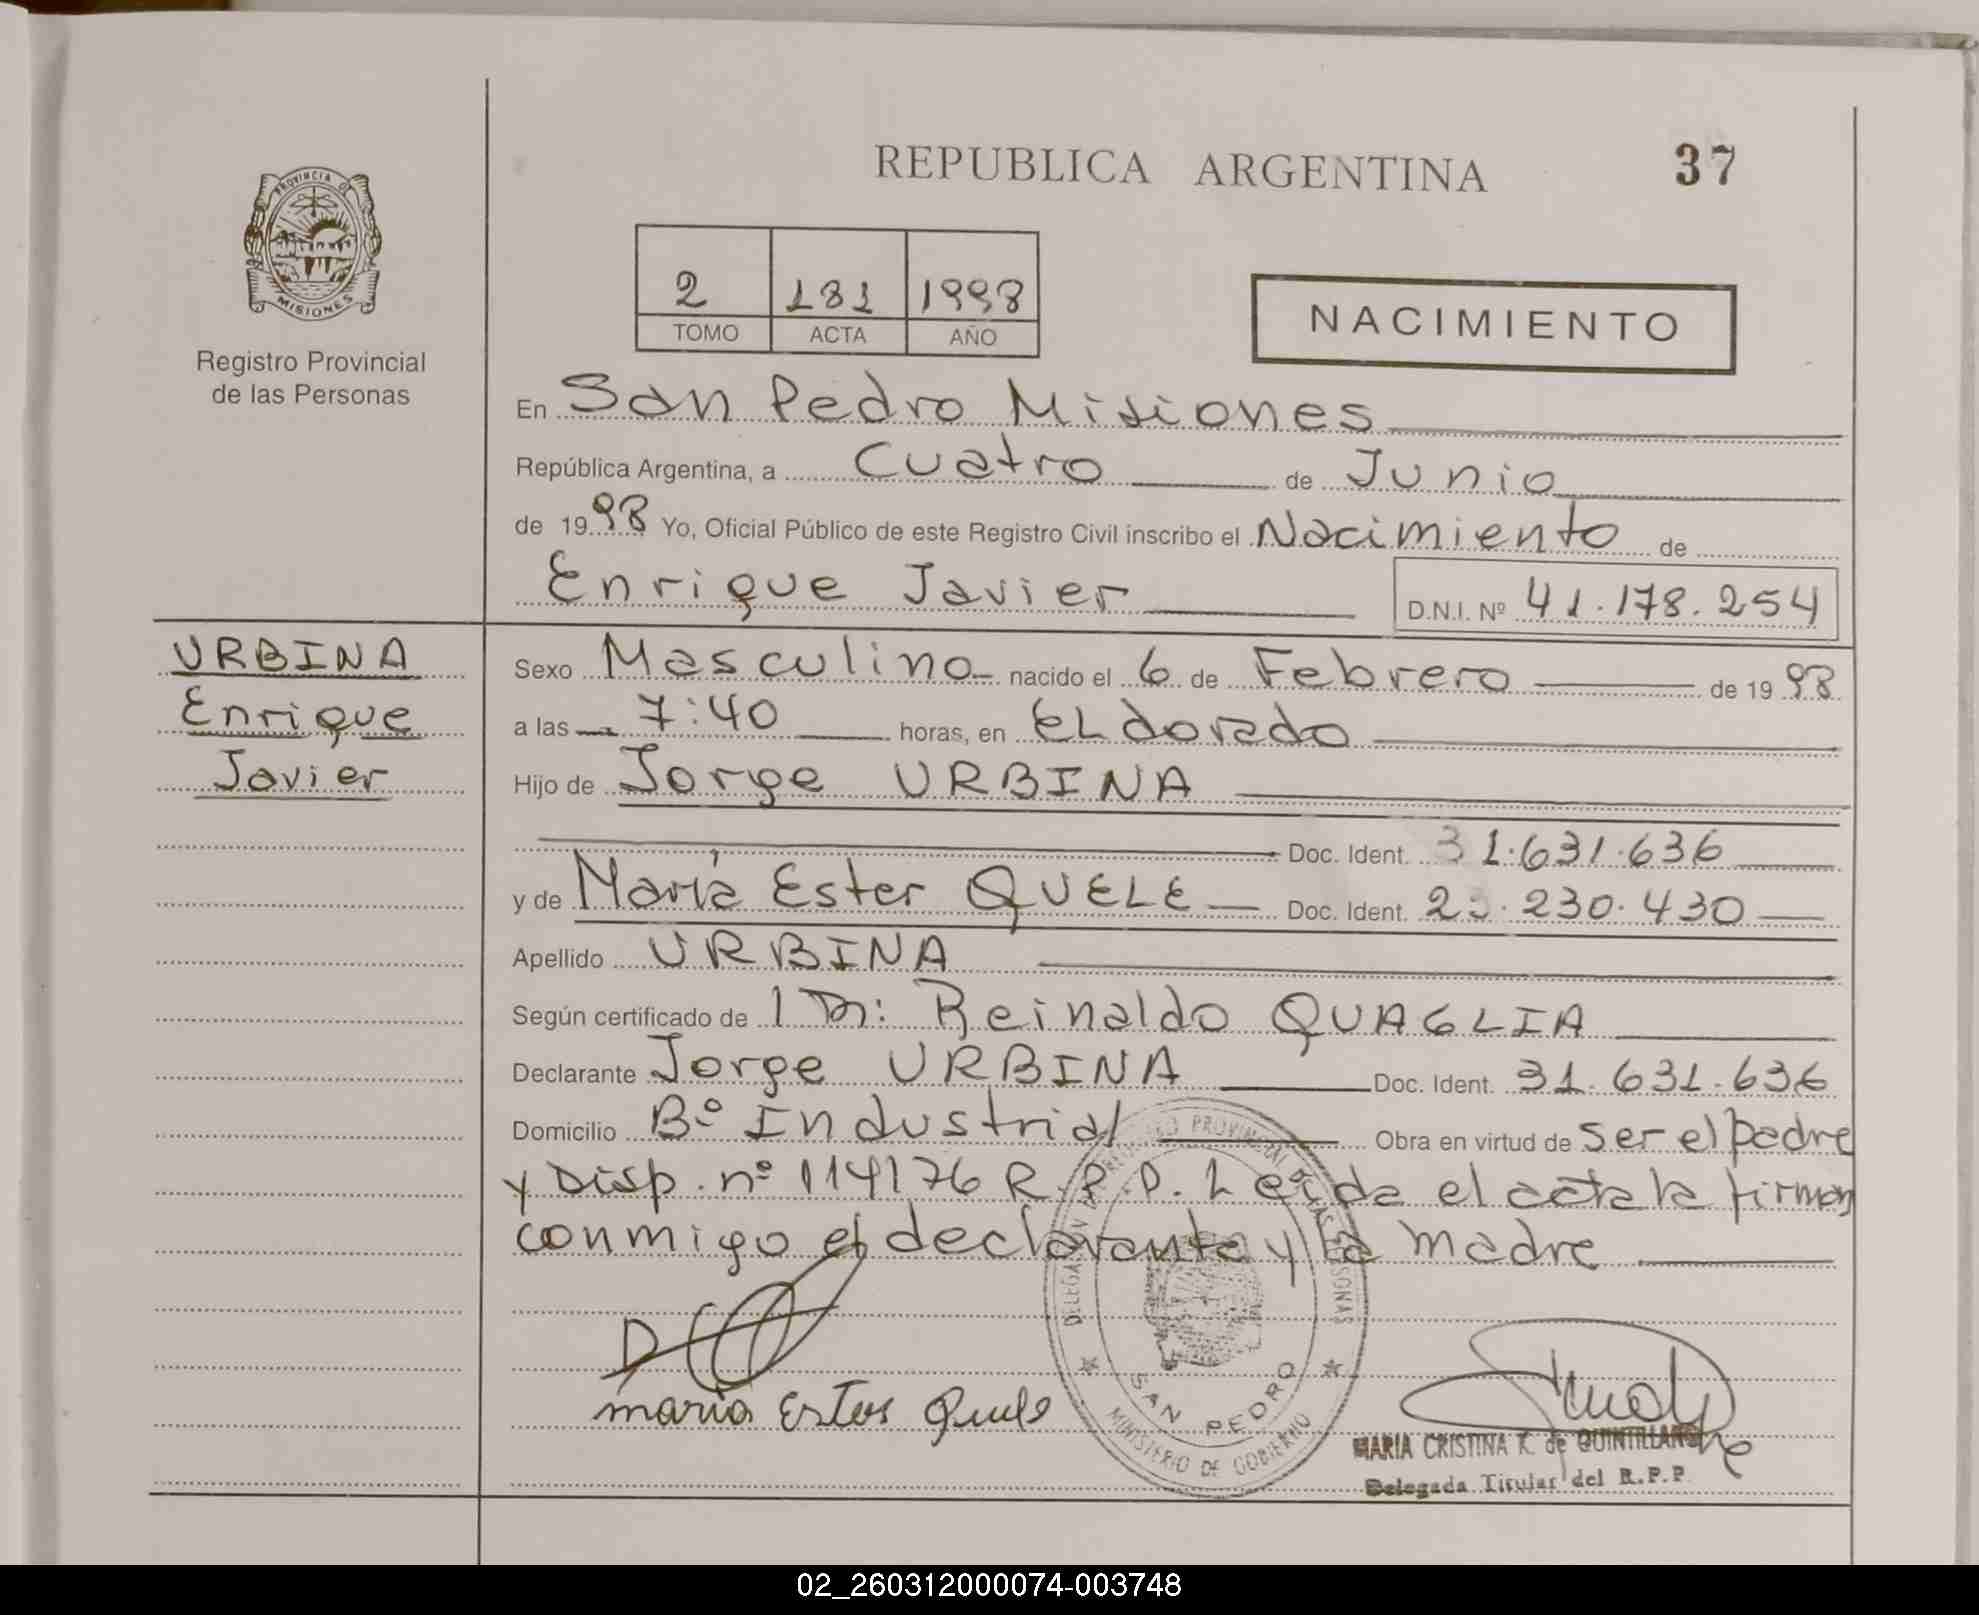 REPUBLICA ARGENTINA
37
PROVINCIA DE
MISIONES
Registro Provincial
de las Personas
2 181 1998
TOMO ACTA AÑO
NACIMIENTO
En San Pedro Misiones
República Argentina, a Cuatro de Junio
de 1998 Yo, Oficial Público de este Registro Civil inscribo el Nacimiento de
Enrique Javier D.N.I. Nº 41.178.254
URBINA
Enrique
Javier
Sexo Masculino nacido el 6 de Febrero de 1998
a las 7:40 horas, en ELdorado
Hijo de Jorge URBINA
Doc. Ident. 31.631.636
y de María Ester QUELE Doc. Ident. 23.230.430
Apellido URBINA
Según certificado de 1 Dr: Reinaldo QUAGLIA
Declarante Jorge URBINA Doc. Ident. 31.631.636
Domicilio Bº Industrial Obra en virtud de ser el padre
y Disp. nº 114176 R.P.P. Leída el acta la firman
conmigo el declarante y la madre
DELEGACION REGISTRO PROVINCIAL DE LAS PERSONAS
SAN PEDRO
MINISTERIO DE GOBIERNO
maria Ester Quele
MARIA CRISTINA K. de QUINTILLAN
Delegada Titular del R.P.P.
02_260312000074-003748